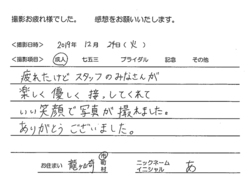 撮影お疲れ様でした。 感想をお願いいたします。
<撮影日時> 2019年 12月 24日(火)
<撮影項目> 成人 七五三 ブライダル 記念 その他
疲れたけどスタッフのみなさんが
楽しく優しく接してくれて
いい笑顔で写真が撮れました。
ありがとうございました。
お住まい 龍ヶ崎 市町村 ニックネーム イニシャル あ